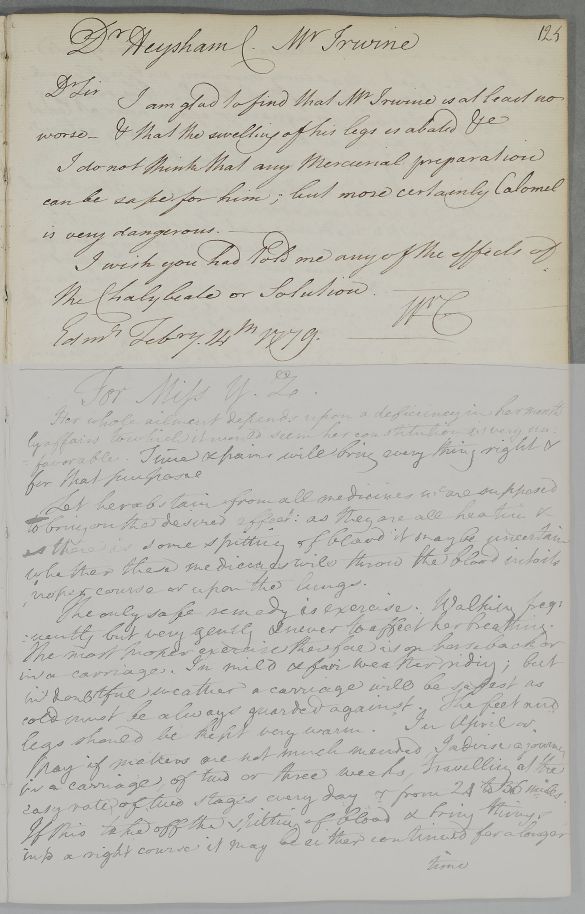 125
Dr Heysham C. Mr Irwine
Dr Sir
I am glad to find that Mr Irwine is at least no
worse - & that the swelling of his legs is abated &c
I do not think that any Mercurial preparation
can be safe for him; but more certainly Calomel
is very dangerous. -
I wish you had told me any of the effects of
the Chalybeate or Solution.
Wm C
Edinr Febry. 14th 1779.
For Miss Y. Z.
Her whole ailment depends upon a deficiency in her month
ly affairs to which it would seem her constitution is very un:
:favorable. Time & pains will bring every thing right &
for that purpose
Let her abstain from all medicines wc are supposed
to bring on the desired effect: as they are all heating &
as there is some spitting of blood it may be uncertain
whether these medicines will throw the blood into its
proper course or upon the lungs.
The only safe remedy is exercise. Walking freq:
:uently but very gently & never to affect her breathing.
The most proper exercise therefore is on horseback or
in a carriage. In mild & fair weather riding; but
in doubtful weather a carriage will be safest as
cold must be always guarded against. The feet and
legs should be kept very warm. In April or
May if matters are not much mended I advise a journey
in a carriage of two or three weeks, travelling at the
easy rate of two stages every day & from 24 to 30 miles.
If this take off the spitting of blood & bring things
into a right course it may be either continued for a longer
time